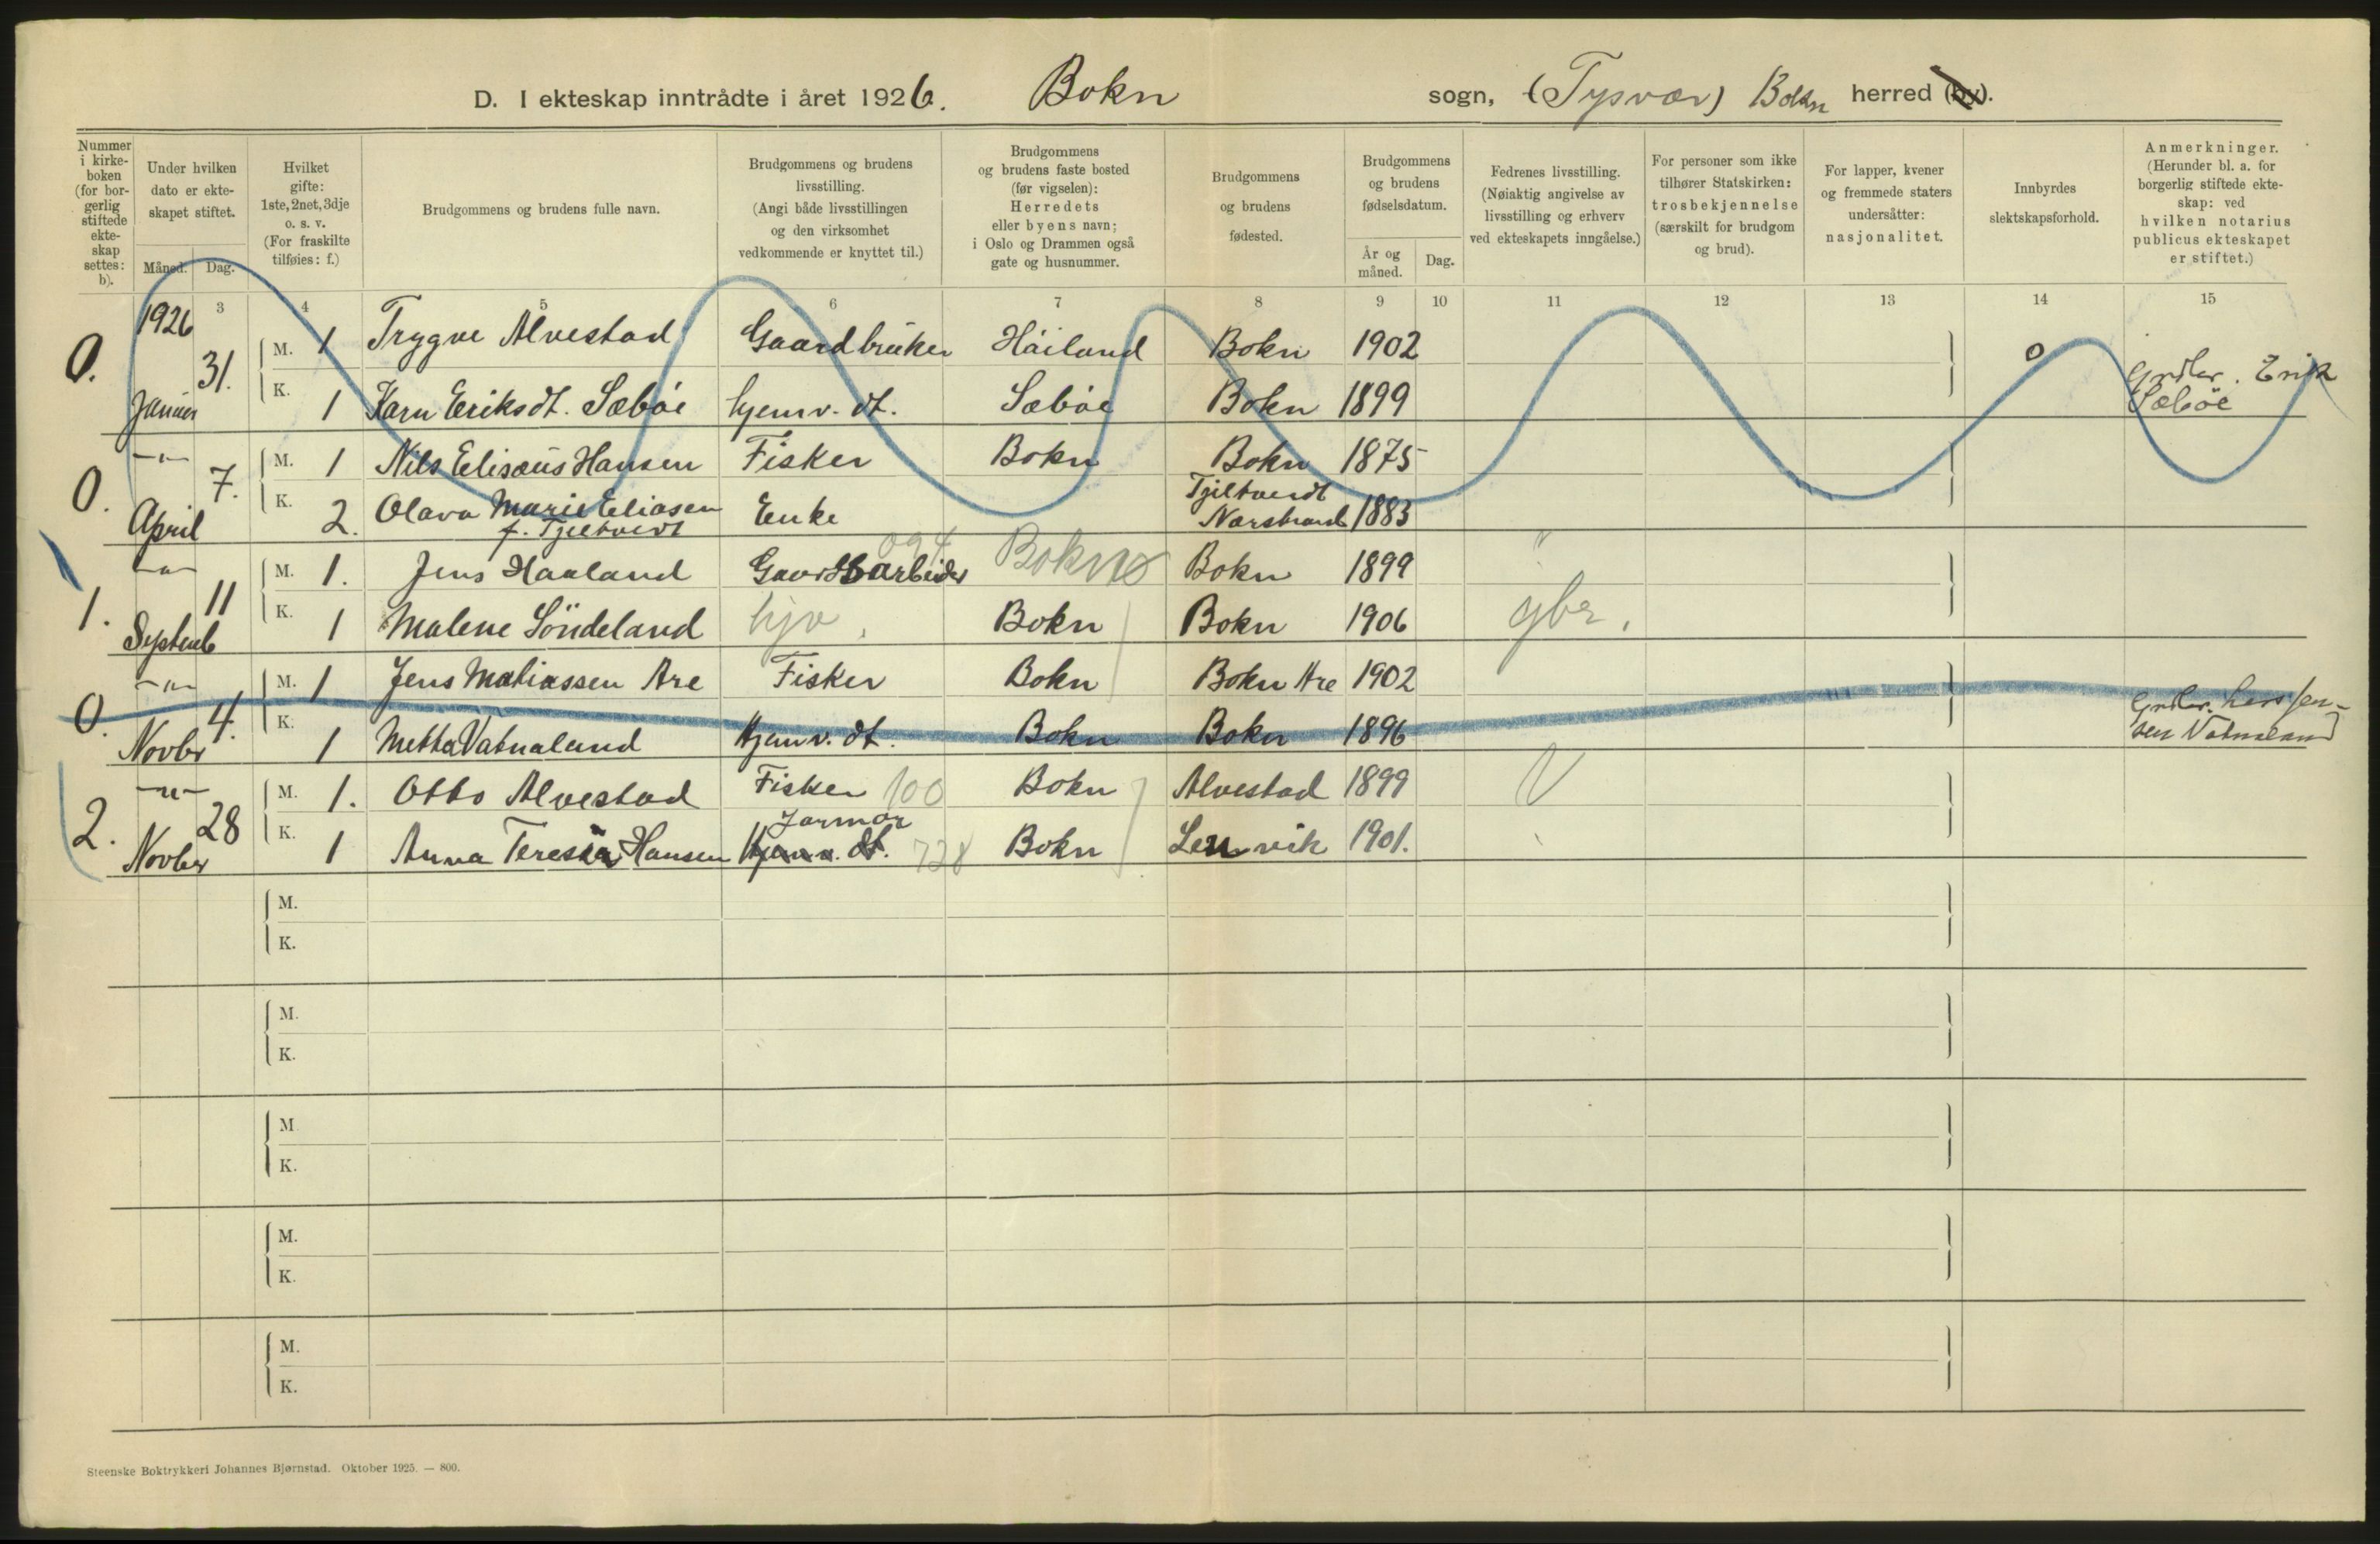 D. I ekteskap inntrådte i året 1926. Bokn sogn, (Tysvær) Bokn herred (by).
Nummer i kirke-boken (for bor-gerlig stiftede ekte-skap settes: b).
Under hvilken dato er ekte-skapet stiftet.
Måned. Dag.
Hvilket gifte: 1ste, 2net, 3dje o. s. v. (For fraskilte tilføies: f.)
Brudgommens og brudens fulle navn.
Brudgommens og brudens livsstilling. (Angi både livsstillingen og den virksomhet vedkommende er knyttet til.)
Brudgommens og brudens faste bosted (før vigselen): Herredets eller byens navn; i Oslo og Drammen også gate og husnummer.
Brudgommens og brudens fødested.
Brudgommens og brudens fødselsdatum.
År og måned. Dag.
Fedrenes livsstilling. (Nøiaktig angivelse av livsstilling og erhverv ved ekteskapets inngåelse.)
For personer som ikke tilhører Statskirken: trosbekjennelse (særskilt for brudgom og brud).
For lapper, kvener og fremmede staters undersåtter: nasjonalitet.
Innbyrdes slektskapsforhold.
Anmerkninger. (Herunder bl. a. for borgerlig stiftede ekte-skap: ved hvilken notarius publicus ekteskapet er stiftet.)
3 4 5 6 7 8 9 10 11 12 13 14 15
1926
0. 31. M. 1 Trygve Alvestad Gaardbruker Håiland Bokn 1902 0
Januar K. 1 Karn Eriksdt. Sæbøe hjemv. dt. Sæbøe Bokn 1899 Grdbr. Erik Sæbøe
0. -"- 7. M. 1 Nils Elisæus Hansen Fisker Bokn Bokn 1875
April K. 2. Olava Marie Eliasen f. Tjeltvedt Enke Tjeltveidt Nærstrand 1883
1. -"- 11 M. 1. Jens Haaland Gaardsarbeider 094 Bokn Bokn 1899
Septemb K. 1 Malene Söndeland hjv. Bokn Bokn 1906 gbr.
0. -"- 4. M. 1 Jens Matiassen Are Fisker Bokn Bokn Are 1902
Novbr K. 1 Metta Vatnaland Hjemv. dt. Bokn Bokn 1896 Grdbr. Lars Jensen Vatnaland
2. -"- 28 M. 1. Otto Alvestad Fisker 100 Bokn Alvestad 1899
Novber K. 1 Anna Teresia Hansen Hjemv. dt. Jormor 728 Bokn Lenvik 1901.
M.
K.
M.
K.
M.
K.
M.
K.
M.
K.
Steenske Boktrykkeri Johannes Bjørnstad. Oktober 1925. — 800.